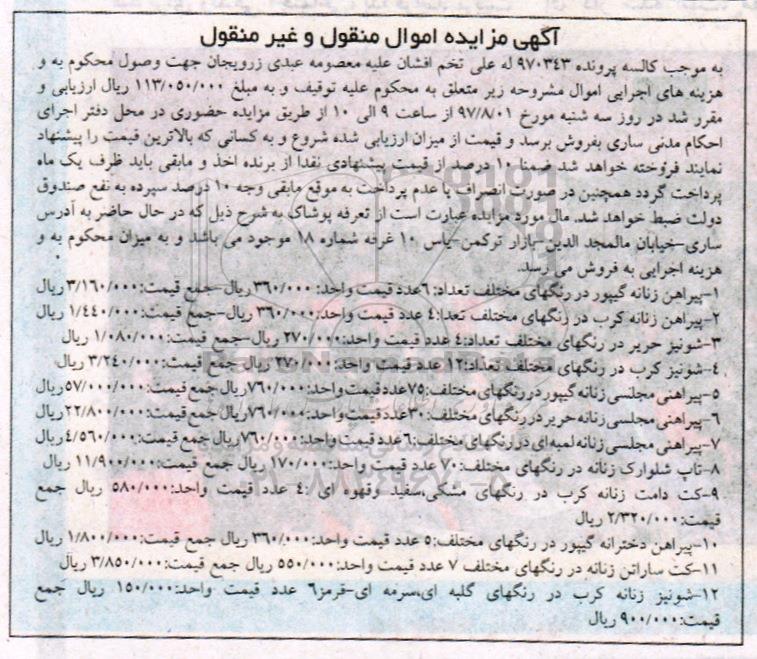 آگهی مزایده اموال منقول و غیر منقول
به موجب کالسه پرونده ۹۷۰۳۴۳ له علی تخم افشان علیه معصومه عبدی زرویجان جهت وصول محکوم به و
هزینه های اجرایی اموال مشروحه زیر متعلق به محکوم علیه توقیف و به مبلغ ۱۱۳/۰۵۰/۰۰۰ ریال ارزیابی و
مقرر شد در روز سه شنبه مورخ ۹۷/۸/۰۱ از ساعت ۹ الی ۱۰ از طریق مزایده حضوری در محل دفتر اجرای
احکام مدنی ساری بفروش برسد و قیمت از میزان ارزیابی شده شروع و به کسانی که بالاترین قیمت را پیشنهاد
نمایند فروخته خواهد شد ضمنا ۱۰ درصد از قیمت پیشنهادی نقدا از برنده اخذ و مابقی باید ظرف یک ماه
پرداخت گردد همچنین در صورت انصراف یا عدم پرداخت به موقع مابقی وجه ۱۰ درصد سپرده به نفع صندوق
دولت ضبط خواهد شد. مال مورد مزایده عبارت است از تعرفه پوشاک به شرح ذیل که در حال حاضر به آدرس
ساری-خیابان مالمجد الدین-بازار ترکمن-یاس ۱۰ غرفه شماره ۱۸ موجود می باشد و به میزان محکوم به و
هزینه اجرایی به فروش می رسد.
۱-پیراهن زنانه گیپور در رنگهای مختلف تعداد: ۶عدد قیمت واحد: ۳۶۰/۰۰۰ ریال-جمع قیمت:۳/۱۶۰/۰۰۰ریال
۲-پیراهن زنانه کرب در رنگهای مختلف تعدا:۴ عدد قیمت واحد:۳۶۰/۰۰۰ریال-جمع قیمت:۱/۴۴۰/۰۰۰ ریال
۳-شونیز حریر در رنگهای مختلف تعداد:۴ عدد قیمت واحد:۲۷۰/۰۰۰ ریال-جمع قیمت:۱/۰۸۰/۰۰۰ ریال
۴-شونیز کرب در رنگهای مختلف تعداد:۱۲ عدد قیمت واحد: ۲۷۰/۰۰۰ ریال جمع قیمت:۳/۲۴۰/۰۰۰ ریال
۵-پیراهنی مجلسی زنانه گیپور در رنگهای مختلف:۷۵عدد قیمت واحد:۷۶۰/۰۰۰ریال جمع قیمت:۵۷/۰۰۰/۰۰۰ریال
۶-پیراهنی مجلسی زنانه حریر در رنگهای مختلف:۳۰عدد قیمت واحد:۷۶۰/۰۰۰ریال جمع قیمت:۲۲/۸۰۰/۰۰۰ریال
۷-پیراهنی مجلسی زنانه لمیه ای در رنگهای مختلف:۶ عدد قیمت واحد:۷۶۰/۰۰۰ریال جمع قیمت:۴/۵۶۰/۰۰۰ریال
۸-تاپ شلوارک زنانه در رنگهای مختلف:۷۰ عدد قیمت واحد:۱۷۰/۰۰۰ ریال جمع قیمت:۱۱/۹۰۰/۰۰۰ ریال
۹-کت دامت زنانه کرب در رنگهای مشکی،سفید وقهوه ای :۴ عدد قیمت واحد:۵۸۰/۰۰۰ ریال جمع
قیمت:۲/۳۲۰/۰۰۰ ریال
۱۰-پیراهن دخترانه گیپور در رنگهای مختلف:۵ عدد قیمت واحد:۳۶۰/۰۰۰ ریال جمع قیمت:۱/۸۰۰/۰۰۰ ریال
۱۱-کت ساراتن زنانه در رنگهای مختلف ۷ عدد قیمت واحد:۵۵۰/۰۰۰ ریال جمع قیمت:۳/۸۵۰/۰۰۰ ریال
۱۲-شونیز زنانه کرب در رنگهای گلبه ای،سرمه ای-قرمز۶ عدد قیمت واحد:۱۵۰/۰۰۰ ریال جمع
قیمت:۹۰۰/۰۰۰ ریال